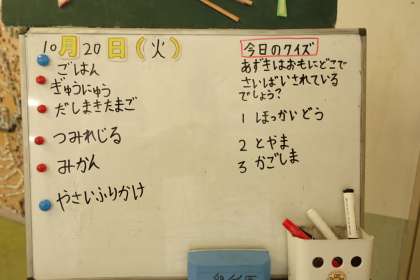 10月20日(火)
ごはん
ぎゅうにゅう
だしまきたまご
つみれじる
みかん
やさいふりかけ
今日のクイズ
あずきはおもにどこで
さいばいされている
でしょう?
1 ほっかいどう
2 とやま
3 かごしま